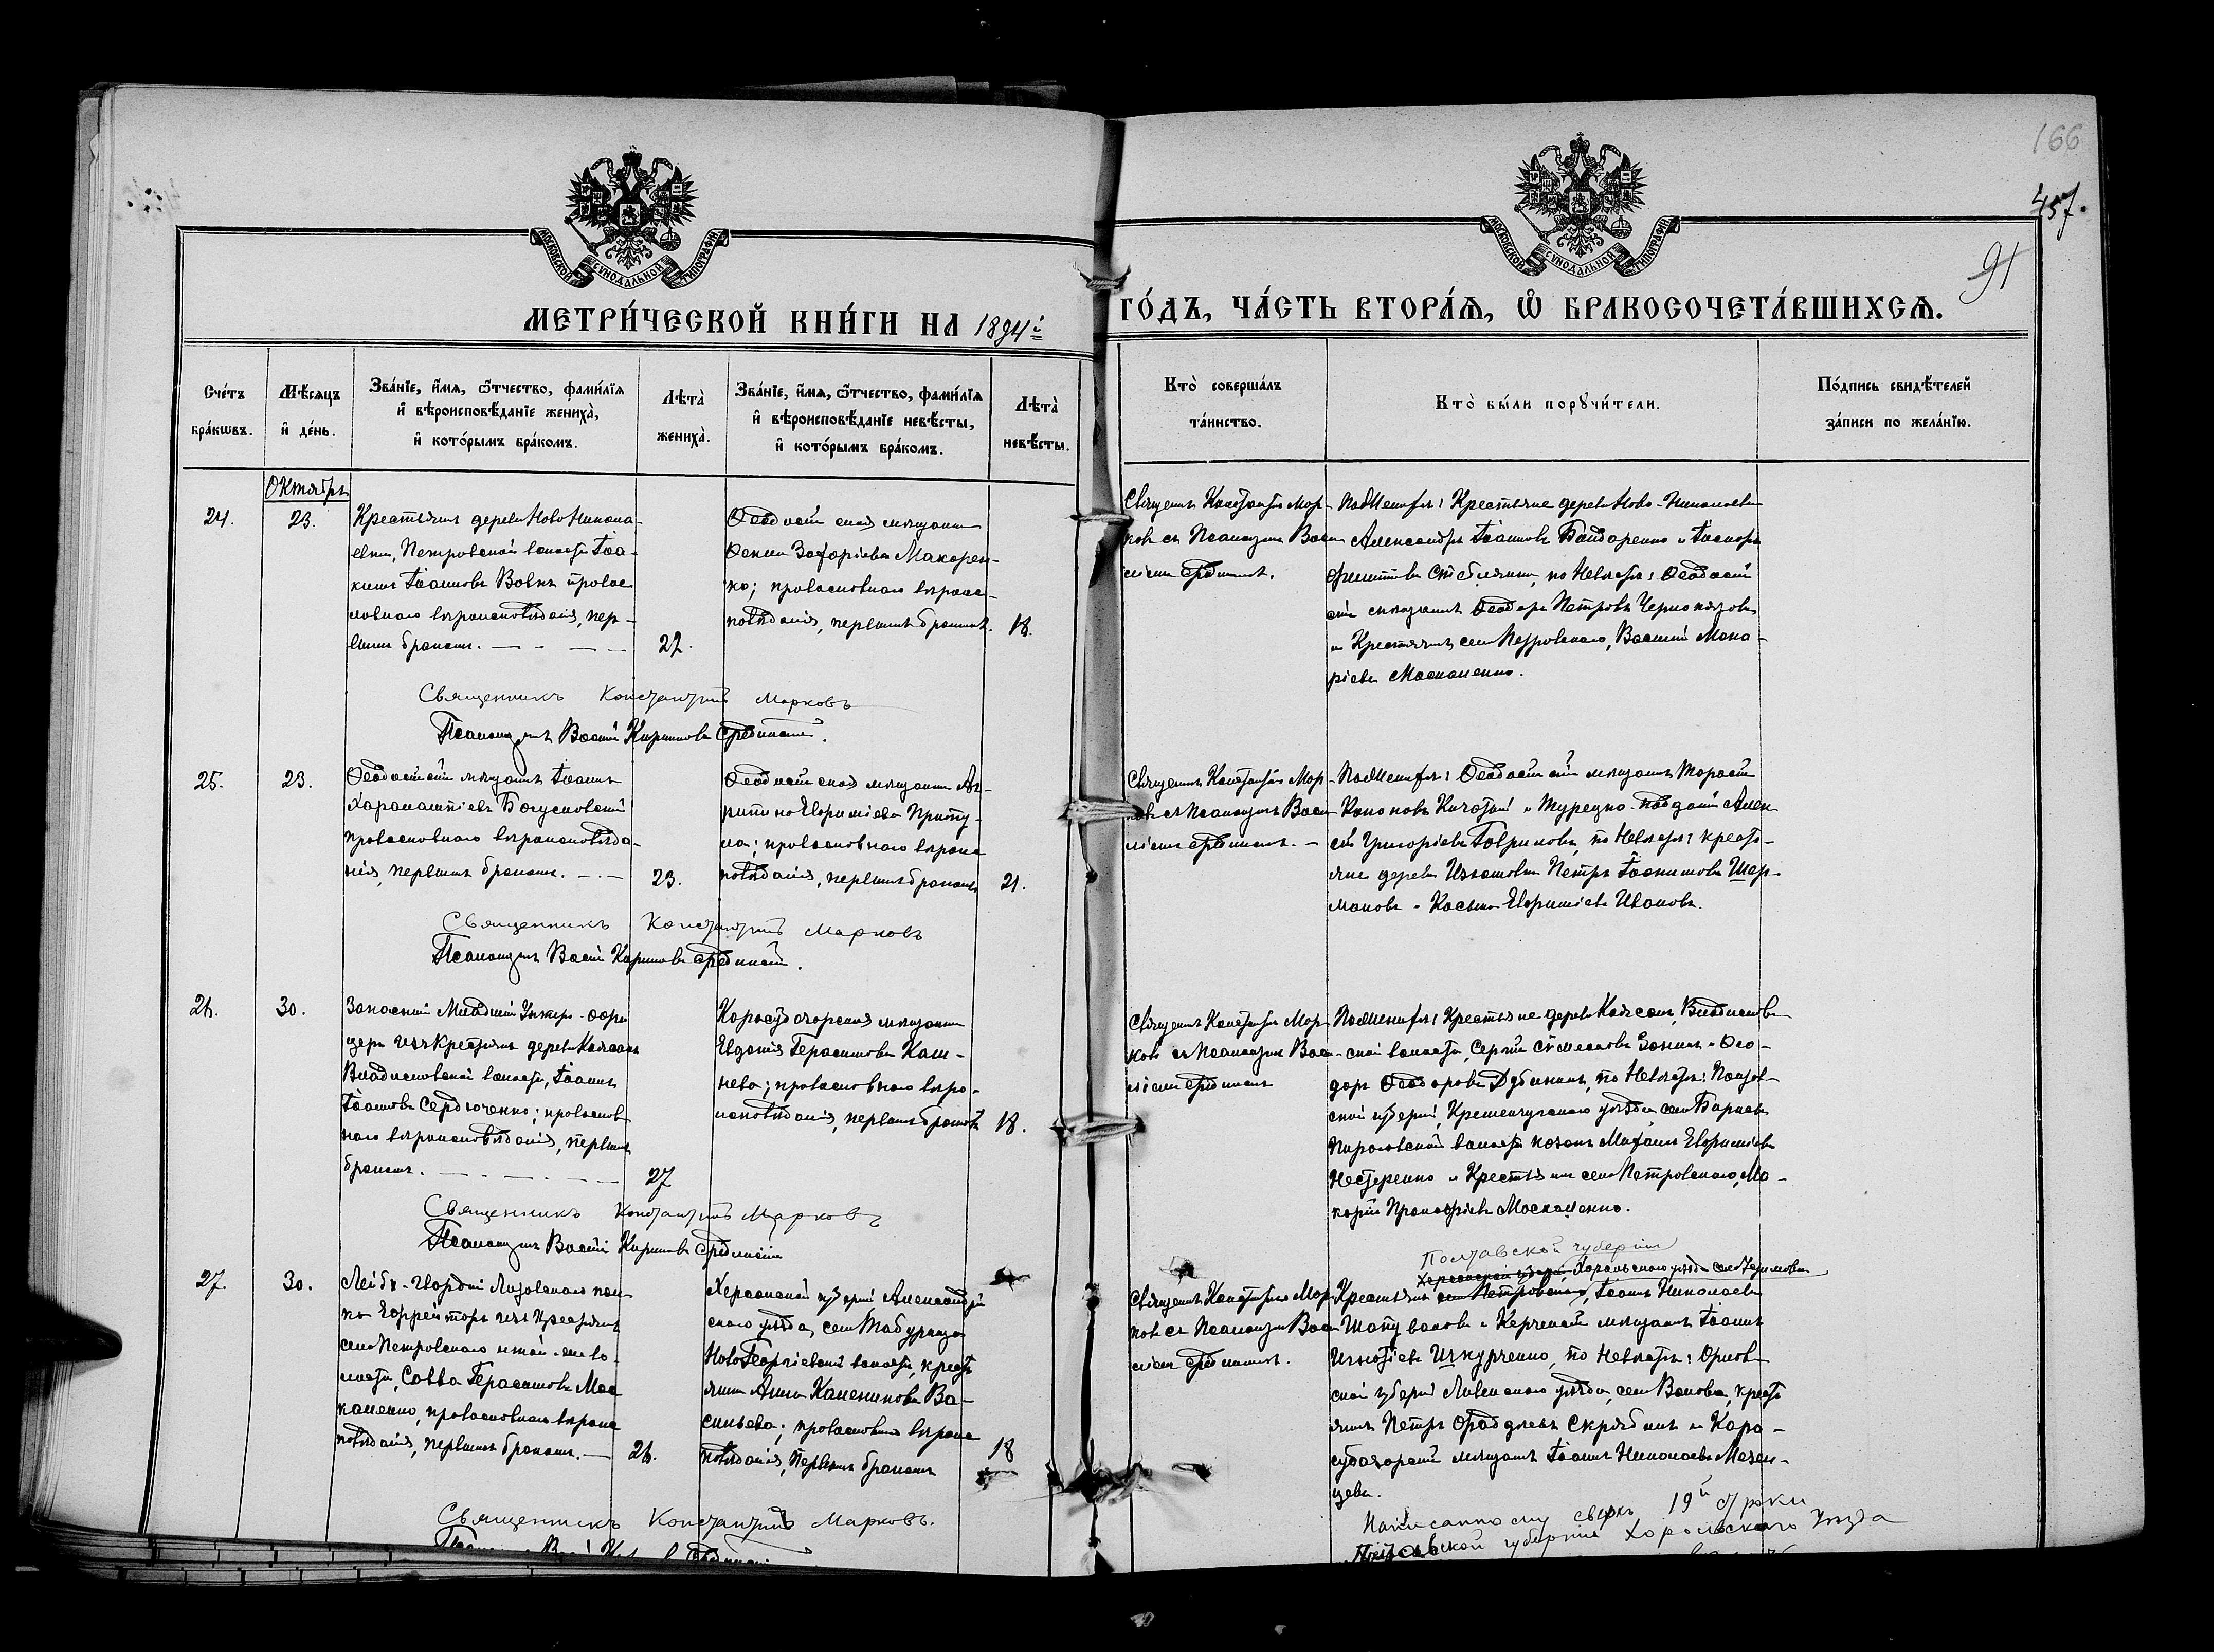 166
457.
91
МОСКОВСКОЙ СѴНОДАЛЬНОЙ ТИПОГРАФІИ
МОСКОВСКОЙ СѴНОДАЛЬНОЙ ТИПОГРАФІИ
МЕТРИ́ЧЕСКОЙ КНИ́ГИ НА 1894й
ГО́ДЪ, ЧА́СТЬ ВТОРА́Ѧ, Ѡ҆ БРАКОСОЧЕТА́ВШИХСѦ.
Сче́тъ
бра́кѡвъ.
Мѣ́сяцъ
и҆ де́нь.
Зва́нїе, и҆́мя, ѻ҆́тчество, фами́лїя
и҆ вѣроисповѣ́данїе жениха̀,
и҆ кото́рымъ бра́комъ.
Лѣта̀
жениха̀.
Зва́нїе, и҆́мя, ѻ҆́тчество, фами́лїя
и҆ вѣроисповѣ́данїе невѣ́сты,
и҆ кото́рымъ бра́комъ.
Лѣта̀
невѣ́сты.
Кто̀ соверша́лъ
та́инство.
Кто̀ бы́ли порꙋчи́тели.
По́дпись свидѣ́телей
за́писи по жела́нїю.
Октябрь
24.
23.
Крестьянинъ деревни Ново Никола-
евки, Петровской волости Іоа-
кимъ Іоанновъ Вовкъ правос
лавнаго вѣроисповѣданія, пер-
вымъ бракомъ.
22.
Ѳеодосійская мѣщанка
Ѳекла Захаріева Макарен-
ко; православнаго вѣроис-
повѣданія, первымъ бракомъ.
18.
Священникъ Константинъ Мар-
ковъ съ Псаломщикомъ Васи
По Женихѣ: Крестьяне деревни Ново-Николаевки
Александръ Іоанновъ Бондаренко и
по Невѣстѣ: Ѳеодосій
скій мѣщанинъ Ѳеодоръ Петровъ
и Крестьянинъ села Петровскаго, Василій Мака-
ріевъ Москаленко.
Священникъ Константинъ Марковъ
Псаломщикъ Василій Кириловъ
25.
23.
Ѳеодосійскій мѣщанинъ Іоаннъ
Харалампіевъ Богуславскій
православнаго вѣроисповѣда-
нія, первымъ бракомъ.
23.
Ѳеодосійская мѣщанка Аг-
рипина Евфиміева Приту-
ла; православнаго вѣроис
повѣданія, первымъ бракомъ
21.
Священникъ Константинъ Мар-
ковъ съ Псаломщикомъ Васи-
По Женихѣ: Ѳеодосійскій мѣщанинъ Тарасій
Кононовъ и Турецко-подданный Алек
сѣй Григоріевъ Гавриловъ, по Невѣстѣ: крестъ-
яне деревни Петръ Іоакимовъ Шар-
мановъ и Косьма Евфиміевъ Ивановъ.
Священникъ Константинъ Марковъ
Псаломщикъ Василій Кириловъ
26.
30.
Запасный Младшій Унтеръ-офи
церъ изъ крестьянъ деревни
Владиславской волости, Іоаннъ
Іоанновъ Сердюченко; православ-
наго вѣроисповѣданія, первымъ
бракомъ.
27
Карасубазарская мѣщанка
Евдокія Герасимова Каш-
нева; православнаго вѣро-
исповѣданія, первымъ бракомъ
18.
Священникъ Константинъ Мар-
ковъ съ Псаломщикомъ Васи-
По Женихѣ: Крестьяне деревни Владиславов
ской волости, Сергій и Ѳео-
доръ Ѳеодоровъ Дубининъ, по Невѣстѣ: Полтав-
ской губерніи, Кременчугскаго уѣзда села
волости казакъ Михаилъ Евфиміевъ
Нестеренко и Крестьянинъ села Петровскаго, Ма-
карій Прокофіевъ Москаленко.
Священникъ Константинъ Марковъ
Псаломщикъ Василій Кириловъ
27.
30.
Лейбъ-Гвардіи пол-
ка Ефрейторъ изъ крестьянъ
села Петровскаго той-же во-
лости, Савва Герасимовъ Мос
каленко, православнаго вѣроис
повѣданія, первымъ бракомъ.
26.
Херсонской губерніи Александрій
скаго уѣзда, села Табурища
НовоГеоргіевской волости, кресть
янка Анна Ва-
сильева; православнаго вѣроис
повѣданія, Первымъ бракомъ
18
Священникъ Константинъ Мар-
ковъ съ Псаломщикомъ Васи
Полтавской губерніи
Херсонской губерніи, Хорольскаго уѣзда села
Крестьянинъ села Петровскаго, Іоаннъ Николаевъ
Шаповаловъ и Керченскій мѣщанинъ Іоаннъ
Игнатіевъ по Невѣстѣ: Орлов-
ской губерніи Ливенскаго уѣзда, села кресть
янинъ Петръ Скрябинъ и Кара-
субазарскій мѣщанинъ Іоаннъ Николаевъ Мезен-
цевъ.
Написанному сверхъ 19й строки
Полтавской губерніи Хорольскаго Уѣзда
Священникъ Константинъ Марковъ.